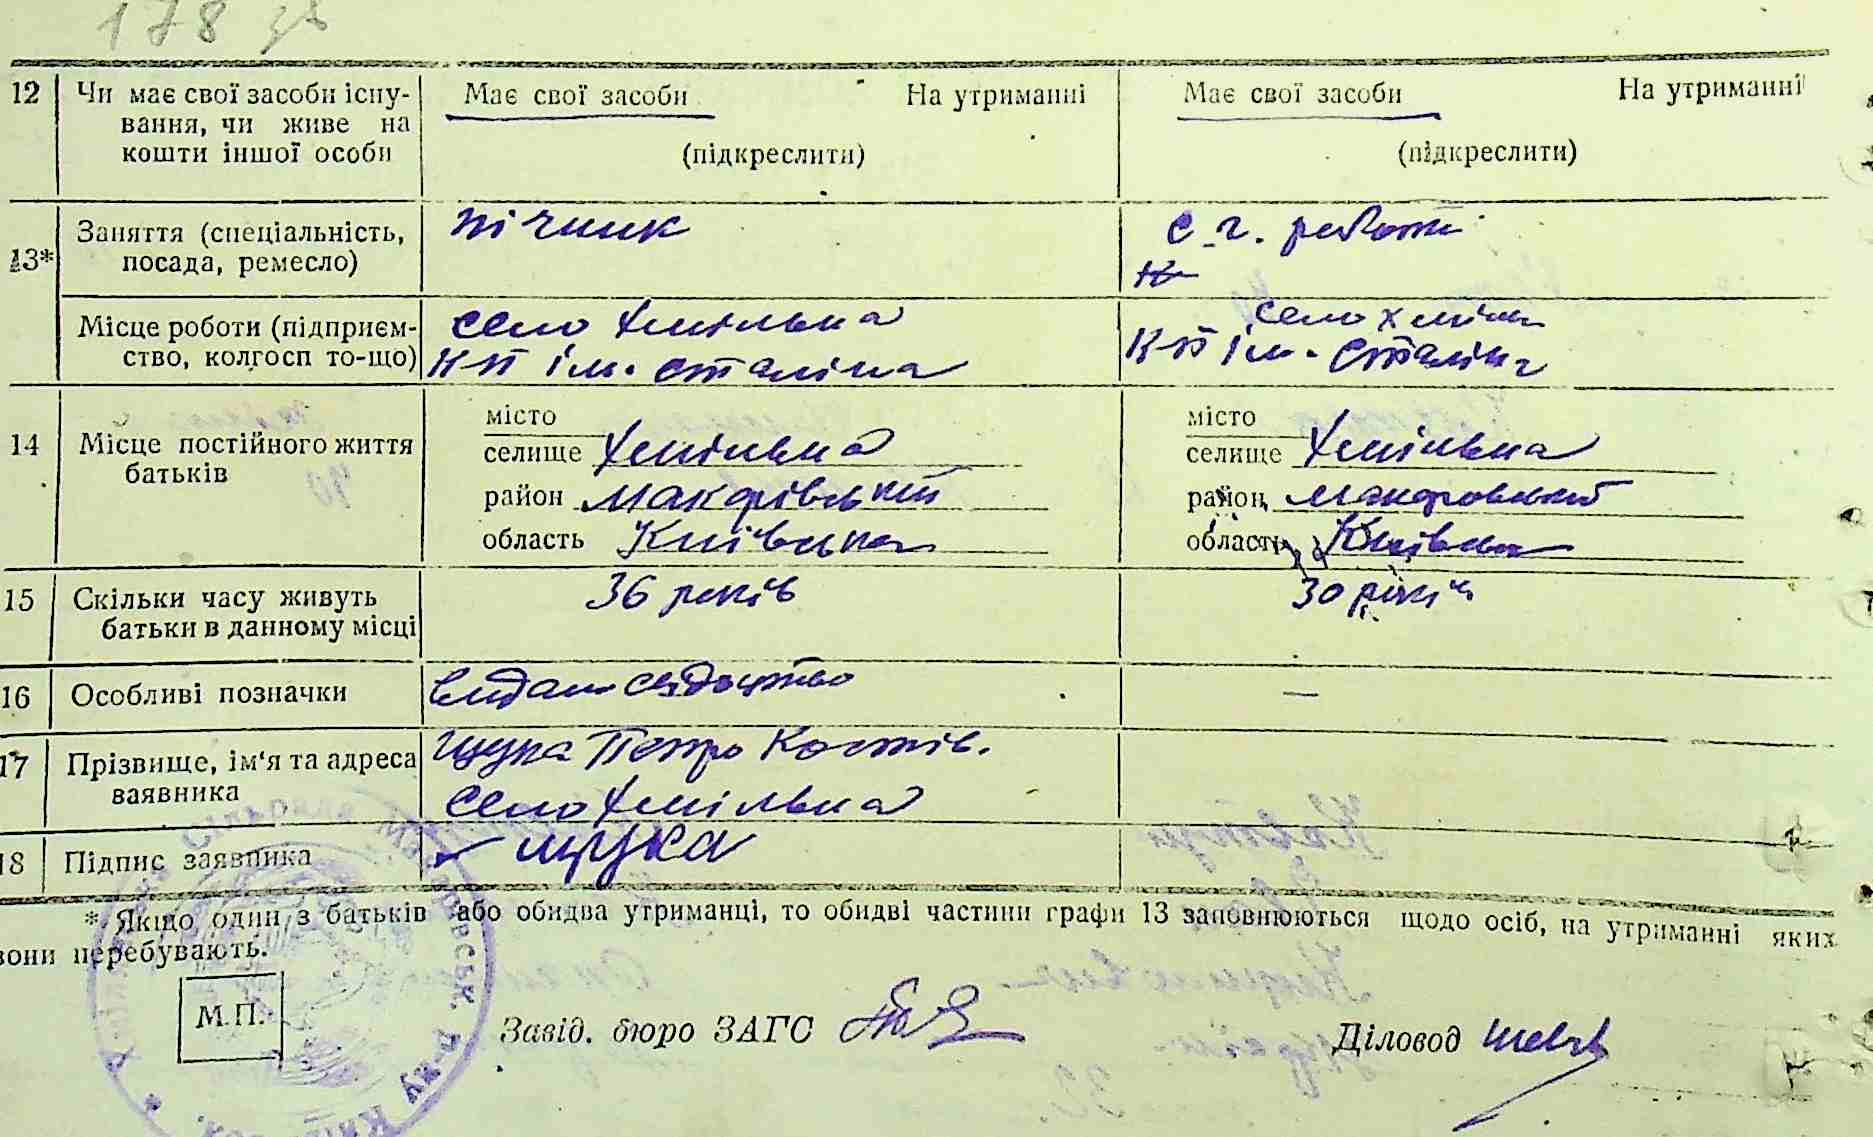 178 зв
12 Чи має свої засоби існу- Має свої засоби На утриманні Має свої засоби На утриманні
вання, чи живе на
кошти іншої особи (підкреслити) (підкреслити)
13* Заняття (спеціальність, пічник с.г. роботі
посада, ремесло)
Місце роботи (підприєм- село Хмільна село Хмільн
ство, колгосп то-що) к-п ім. Сталіна к-п ім. Сталіна
14 Місце постійного життя місто місто
батьків селище Хмільна селище Хмільна
район Макарівський район Макаровський
область Київська область Київська
15 Скільки часу живуть 36 років 30 років
батьки в данному місці
16 Особливі позначки видано свідоцтво —
17 Прізвище, ім'я та адреса Щука Петро Костів.
заявника село Хмільна
18 Підпис заявника Щука
* Якщо один з батьків або обидва утриманці, то обидві частини графи 13 заповнюються щодо осіб, на утриманні яких
вони перебувають.
М.П. Завід. бюро ЗАГС Діловод